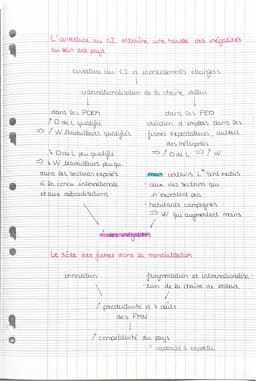 L'ouverture au CI entraîne une hausse des inégalités
au sein des pays
ouverture au CI et investissements étrangers
internationalisation de la chaîne valeur
dans les PDEM
↗ D de L qualifié
⇒ ↗ W travailleurs qualifiés
↘ D de L peu qualifié
⇒ ↘ W travailleurs peu qu
dans les secteurs exposés
à la conc internationale
et aux délocalisations
dans les PED
création d'emplois dans les
firmes exportatrices, autour
des métropoles
⇒ ↗ D de L ⇒ ↗ W
mais certains L sont exclus
- ceux des secteurs qui
n'exportent pas
- habitants campagnes
⇒ W qui augmentent moins
↗ des inégalités
Le rôle des firmes dans la mondialisation
innovation
fragmentation et internationalisa-
tion de la chaîne de valeur
↗ productivité et ↘ coûts
des FMN
↗ compétitivité du pays
= capacité à exporter